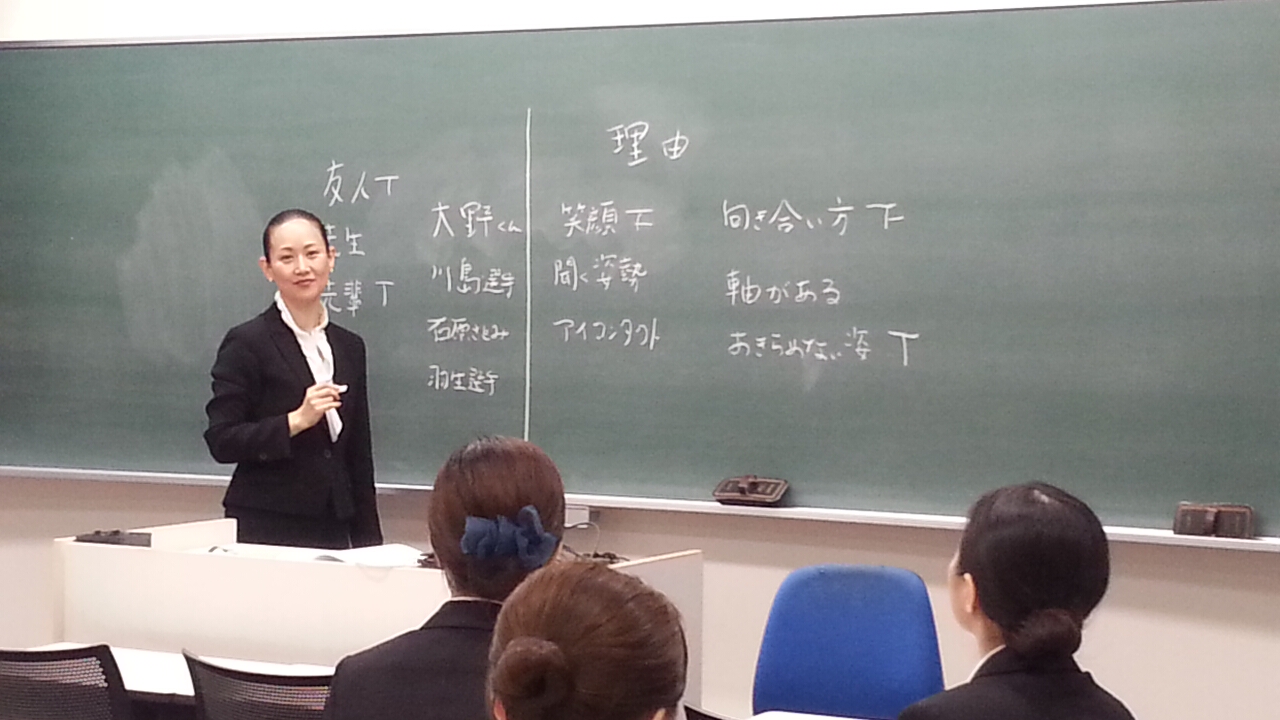 友人 T
先生
先輩 T
大野くん
川島選手
石原さとみ
羽生選手
理由
笑顔 T
聞く姿勢
アイコンタクト
向き合い方 下
軸がある
あきらめない姿 T